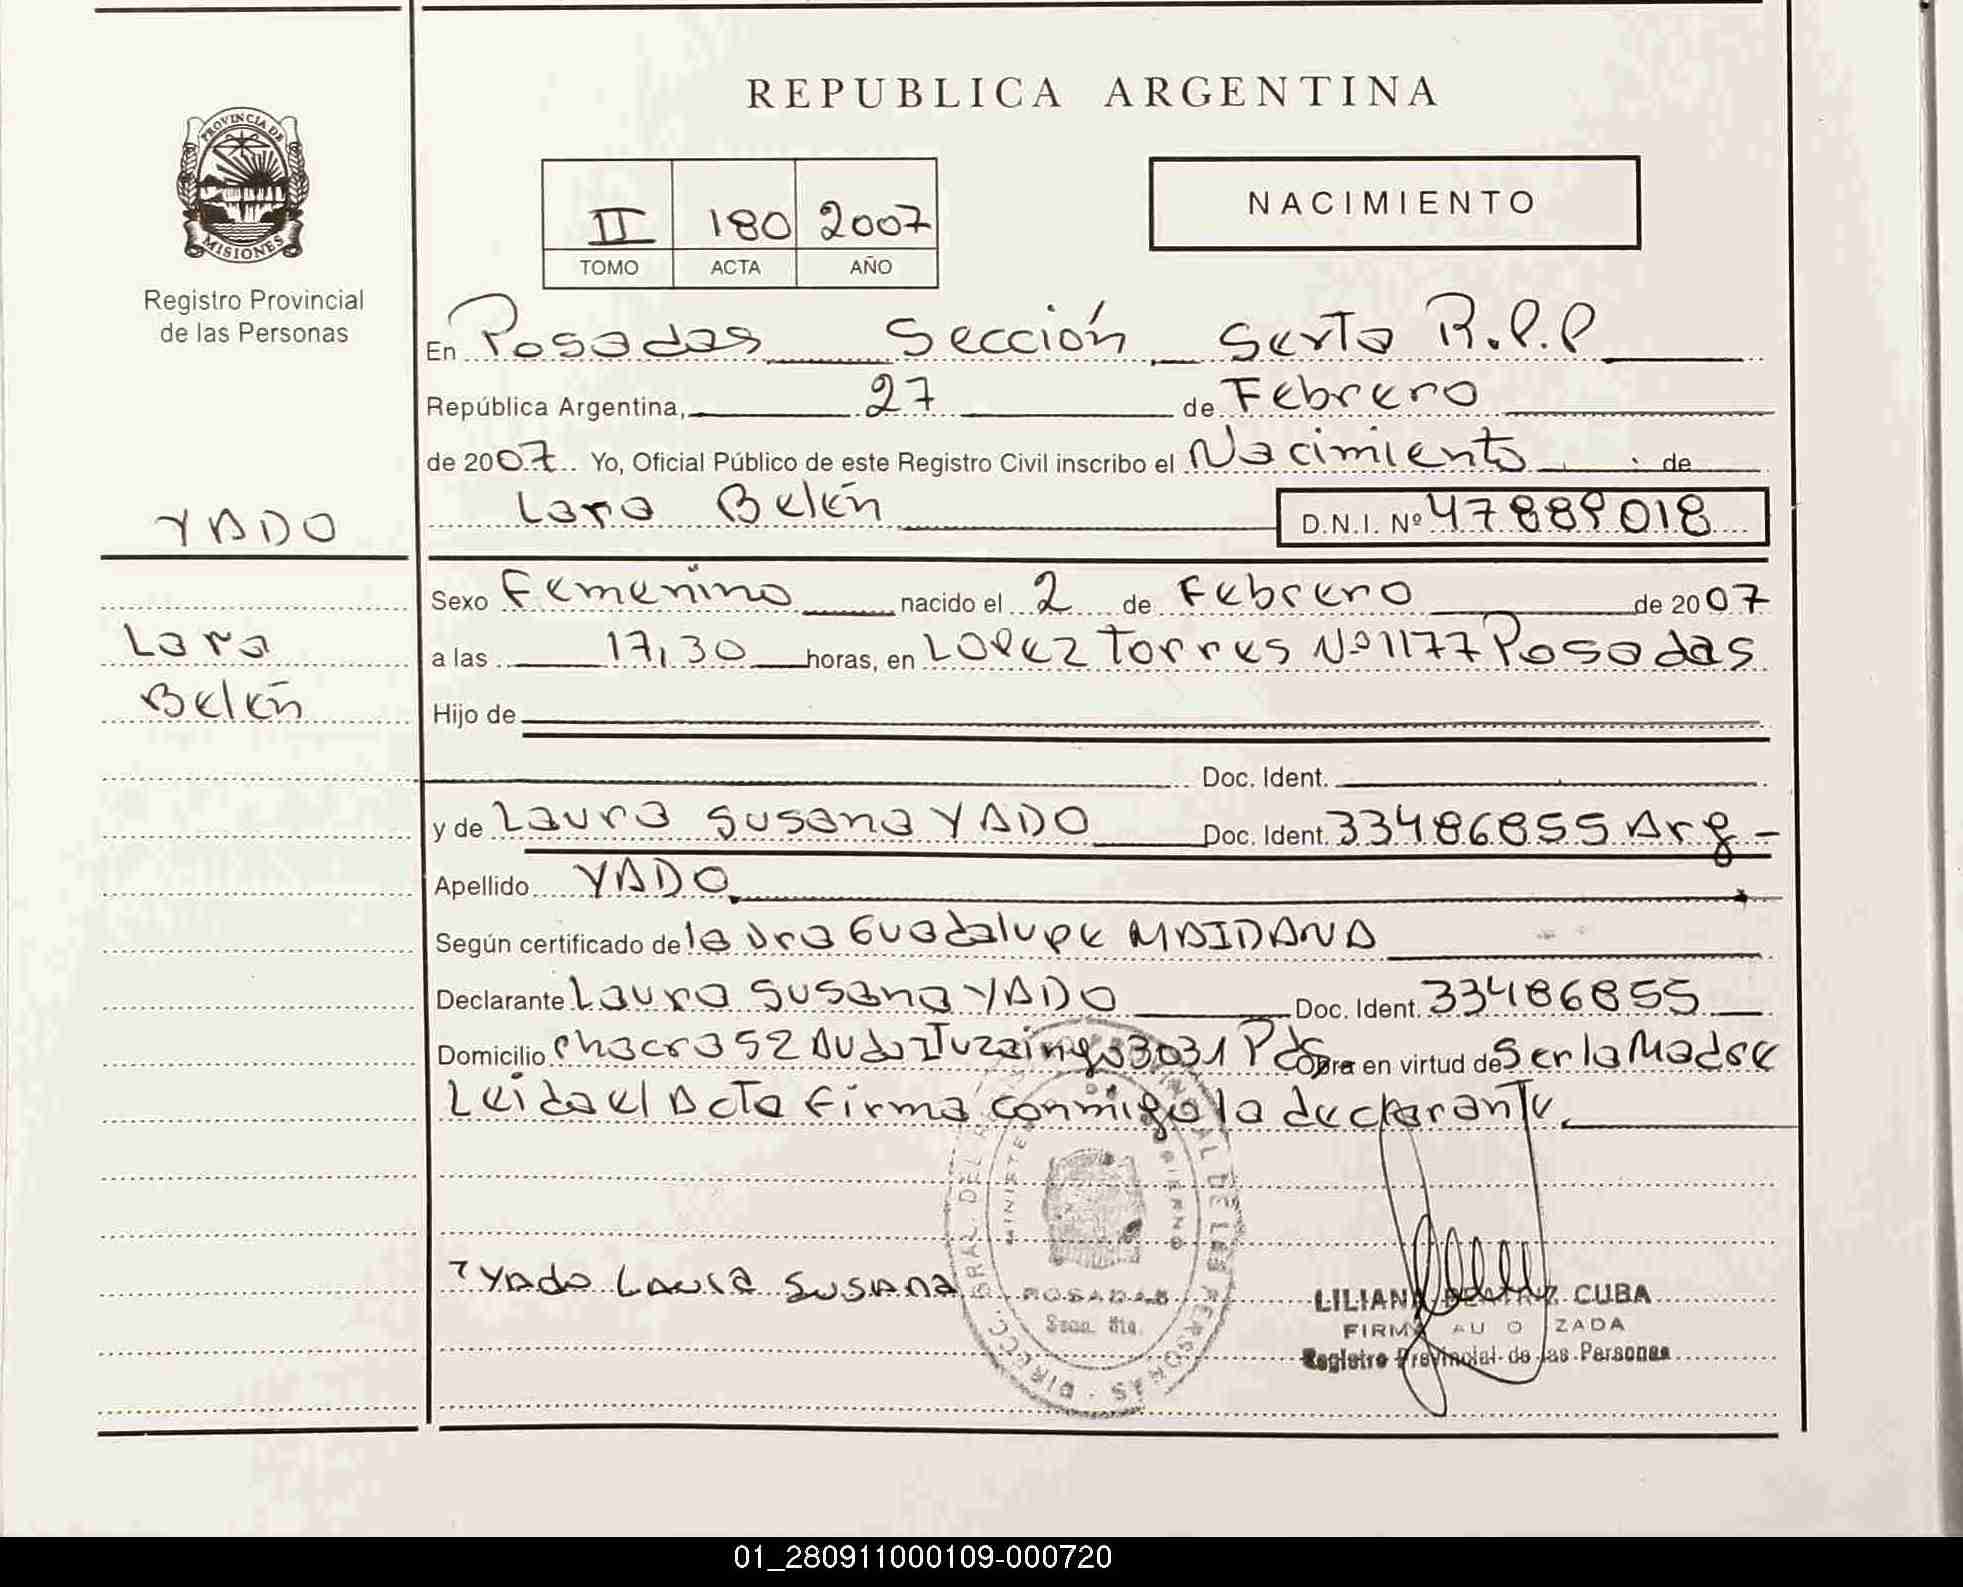 REPUBLICA ARGENTINA
PROVINCIA DE
MISIONES
Registro Provincial
de las Personas
II 180 2007
TOMO ACTA AÑO
NACIMIENTO
En Posadas Sección Sexta R.P.P
República Argentina, 27 de Febrero
de 2007 Yo, Oficial Público de este Registro Civil inscribo el Nacimiento de
Lara Belén D.N.I. Nº 47889018
YADO
Lara
Belén
Sexo Femenino nacido el 2 de Febrero de 2007
a las 17,30 horas, en Lopez Torres Nº 1177 Posadas
Hijo de
Doc. Ident.
y de Laura Susana YADO Doc. Ident. 33486855 Arg
Apellido YADO
Según certificado de la Dra Guadalupe MAIDANA
Declarante Laura Susana YADO Doc. Ident. 33486855
Domicilio chacra 52 Avda Ituzaingo 3031 Pdas Obra en virtud de Ser la Madre
Leida el Acta Firma conmigo la declarante
Yado Laura Susana
POSADAS
LILIANA BEATRIZ CUBA
FIRMA AUTORIZADA
Registro Provincial de las Personas
01_280911000109-000720